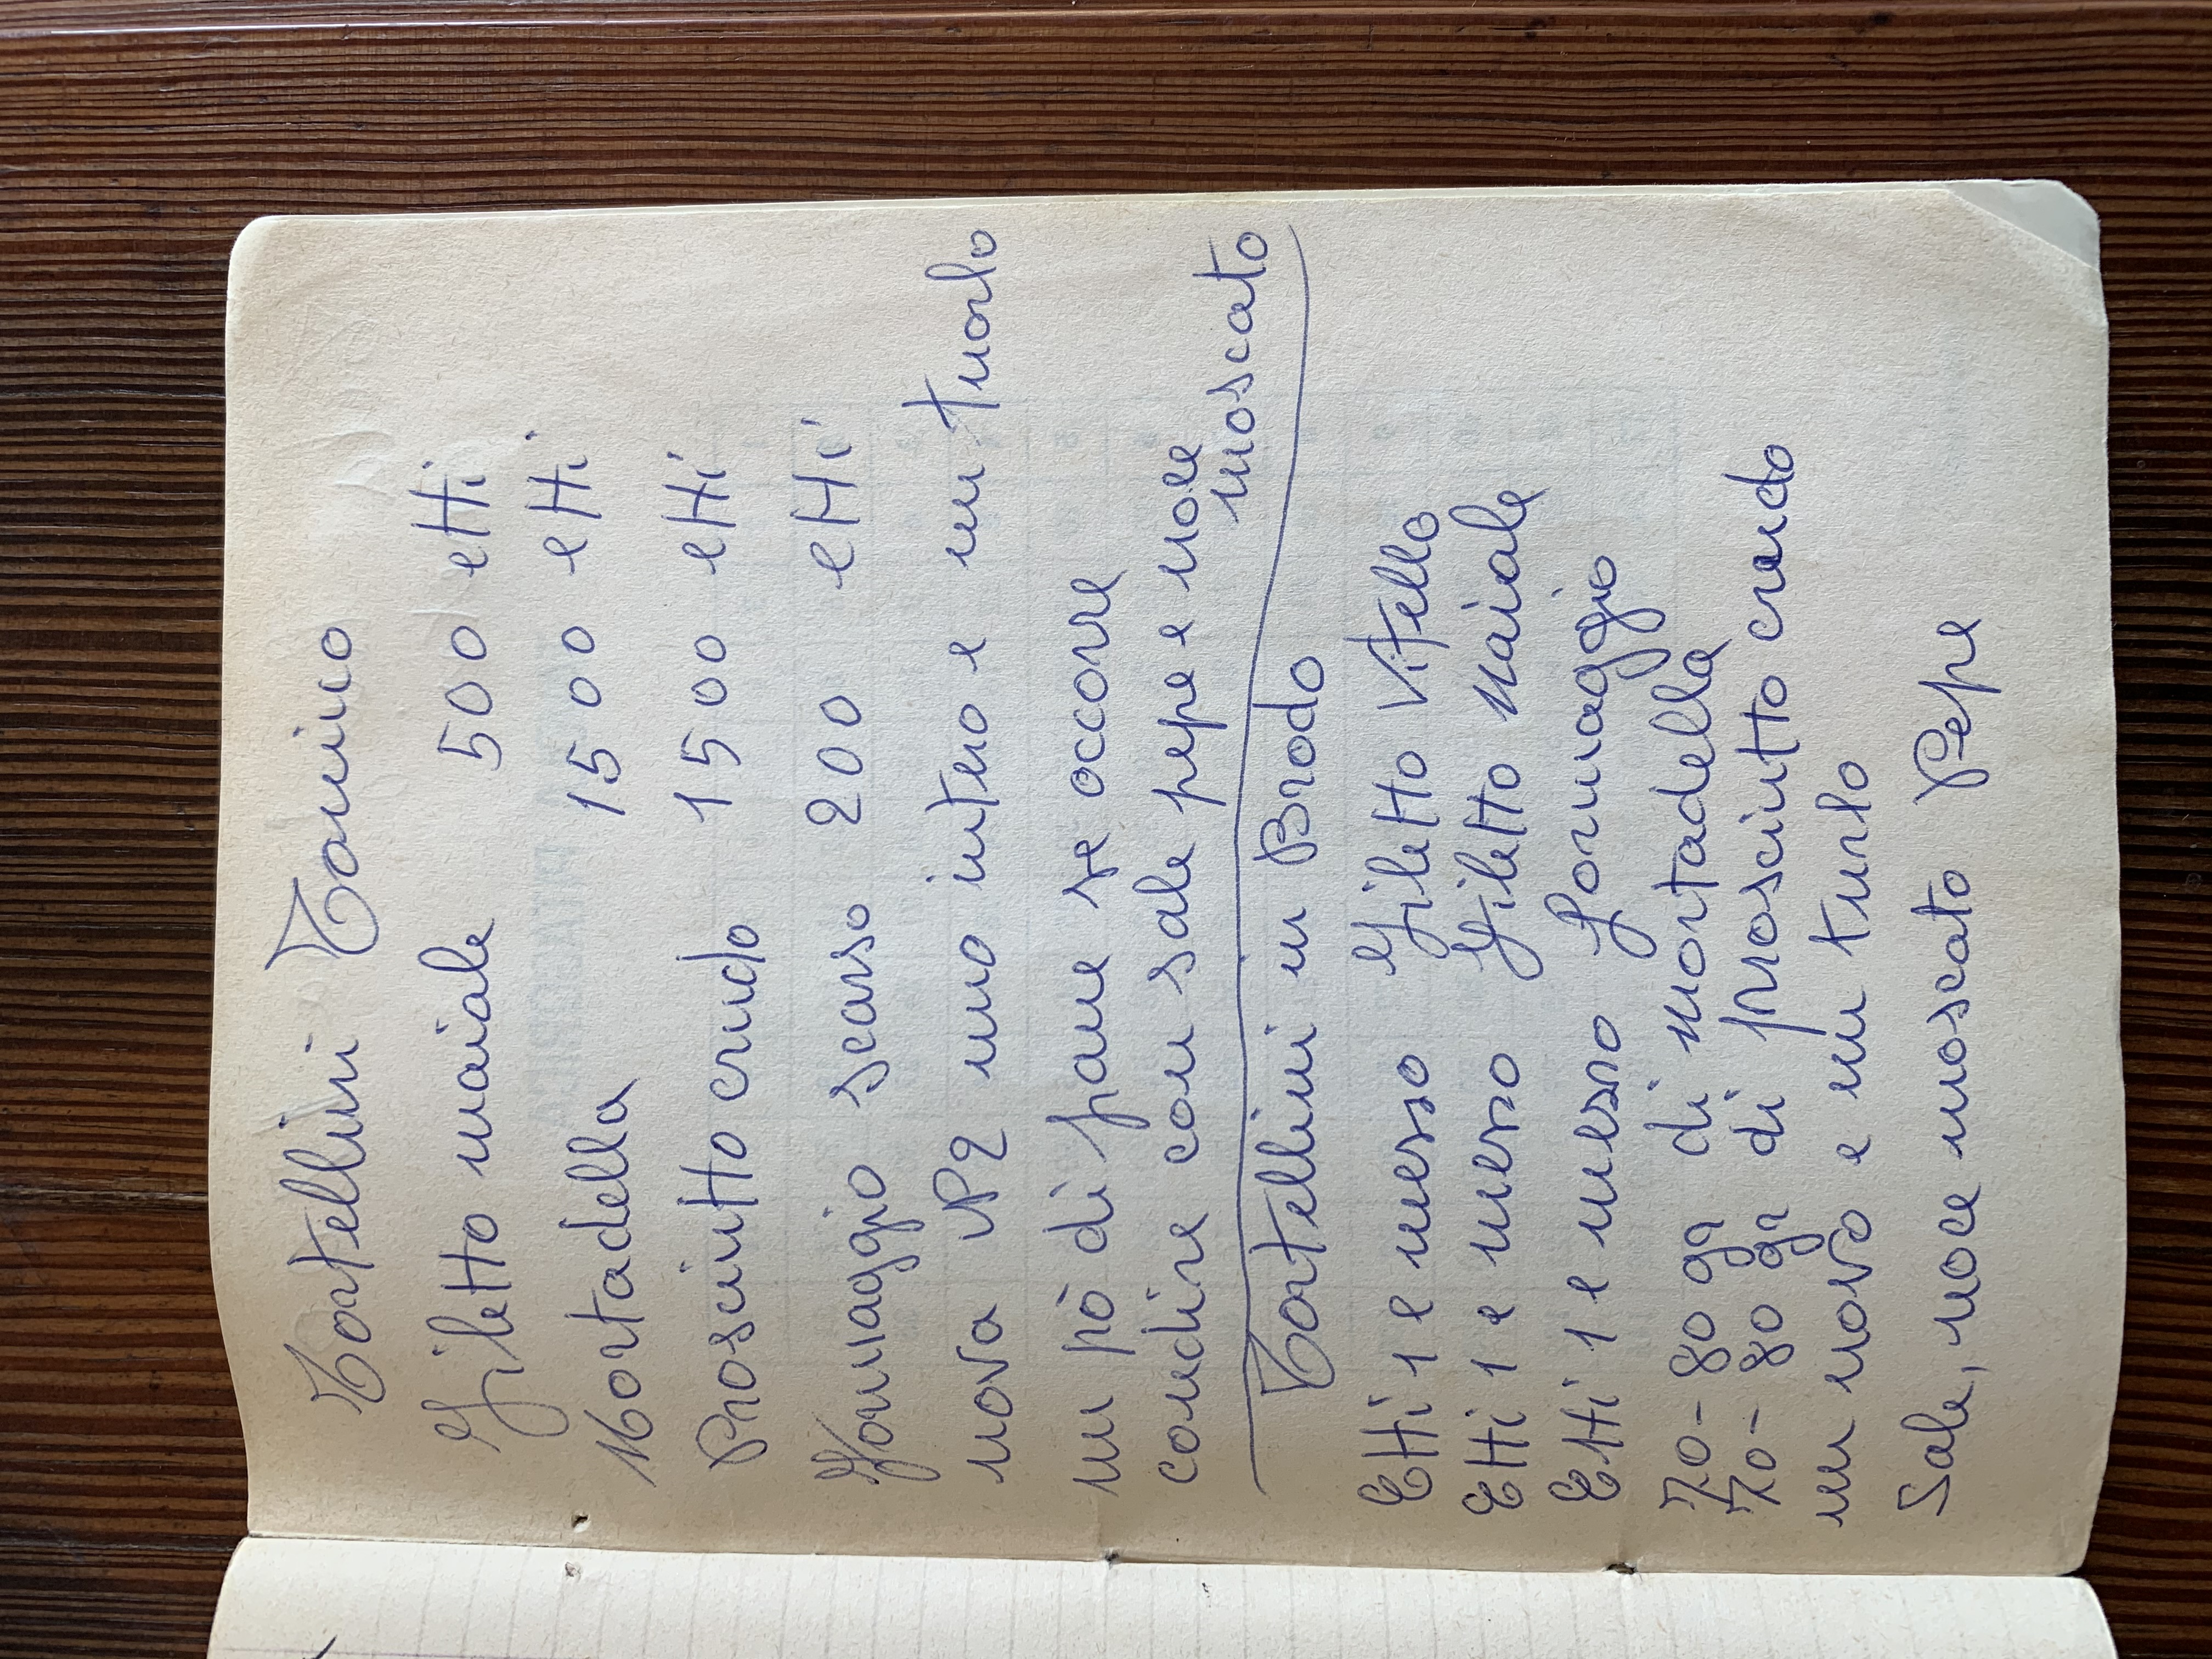 Tortellini Tonino
Filetto maiale 500 etti
Mortadella 1500 etti
Prosciutto crudo 1500 etti
Formaggio scarso 200 etti
uova N°2 uno intero e un tuorlo
un pò di pane se occorre
condire con sale pepe e noce
moscato
Tortellini in Brodo
Etti 1 e messo Filetto Vitello
Etti 1 e messo Filetto Maiale
Etti 1 e messo formaggio
70-80 gr di mortadella
70-80 gr di prosciutto crudo
un uovo e un turlo
Sale, noce moscato Pepe